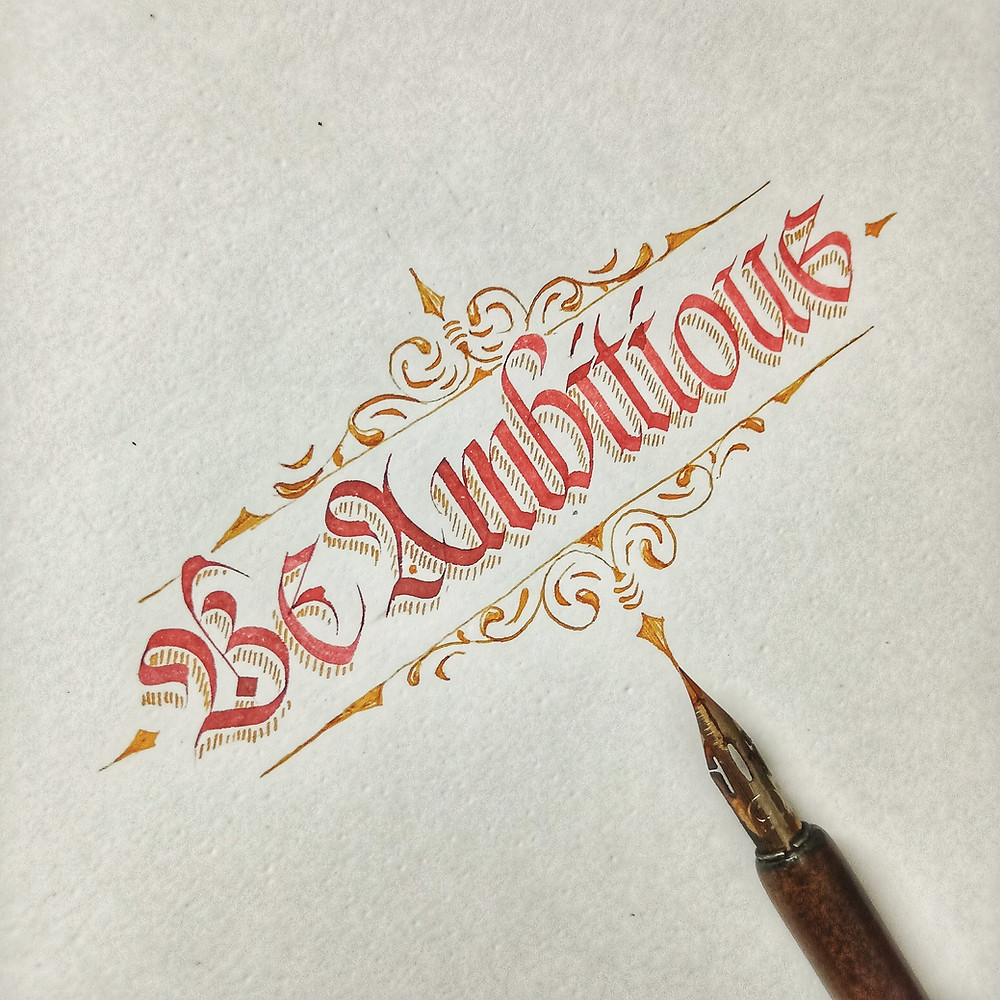 Be Ambitious